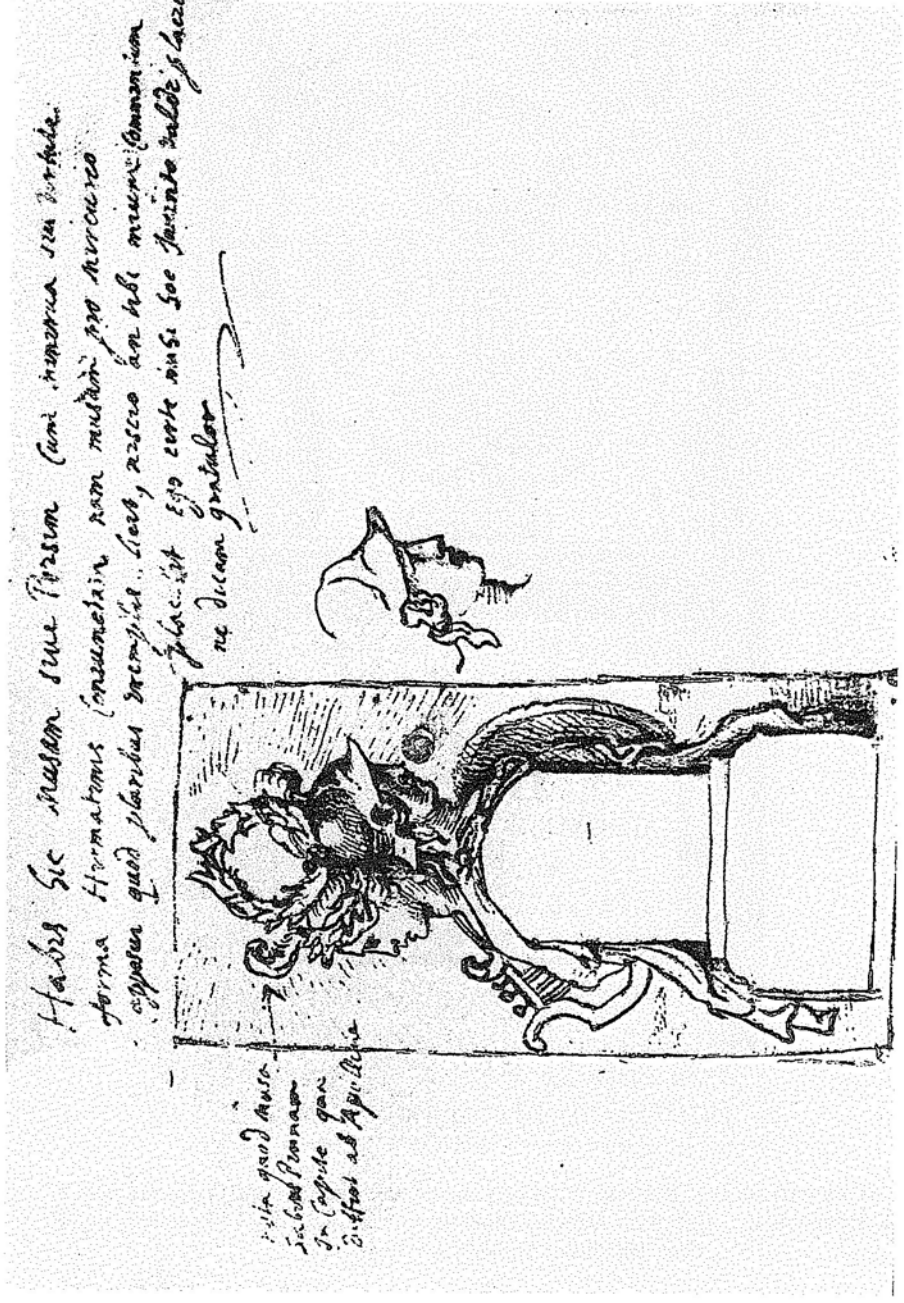 Habes hic musam sive Poesim cum minerva seu virtute
forma Hermatenis conjunctam nam musam pro mercurio
apposui quod pluribus exemplis licet, nescio an tibi meum commentum
placebit Ego certe mihi hoc invento valde placeo
ne dicam gratulor
nota quod musa
habeat Pennam
in Capite qua
differt ab Apolline